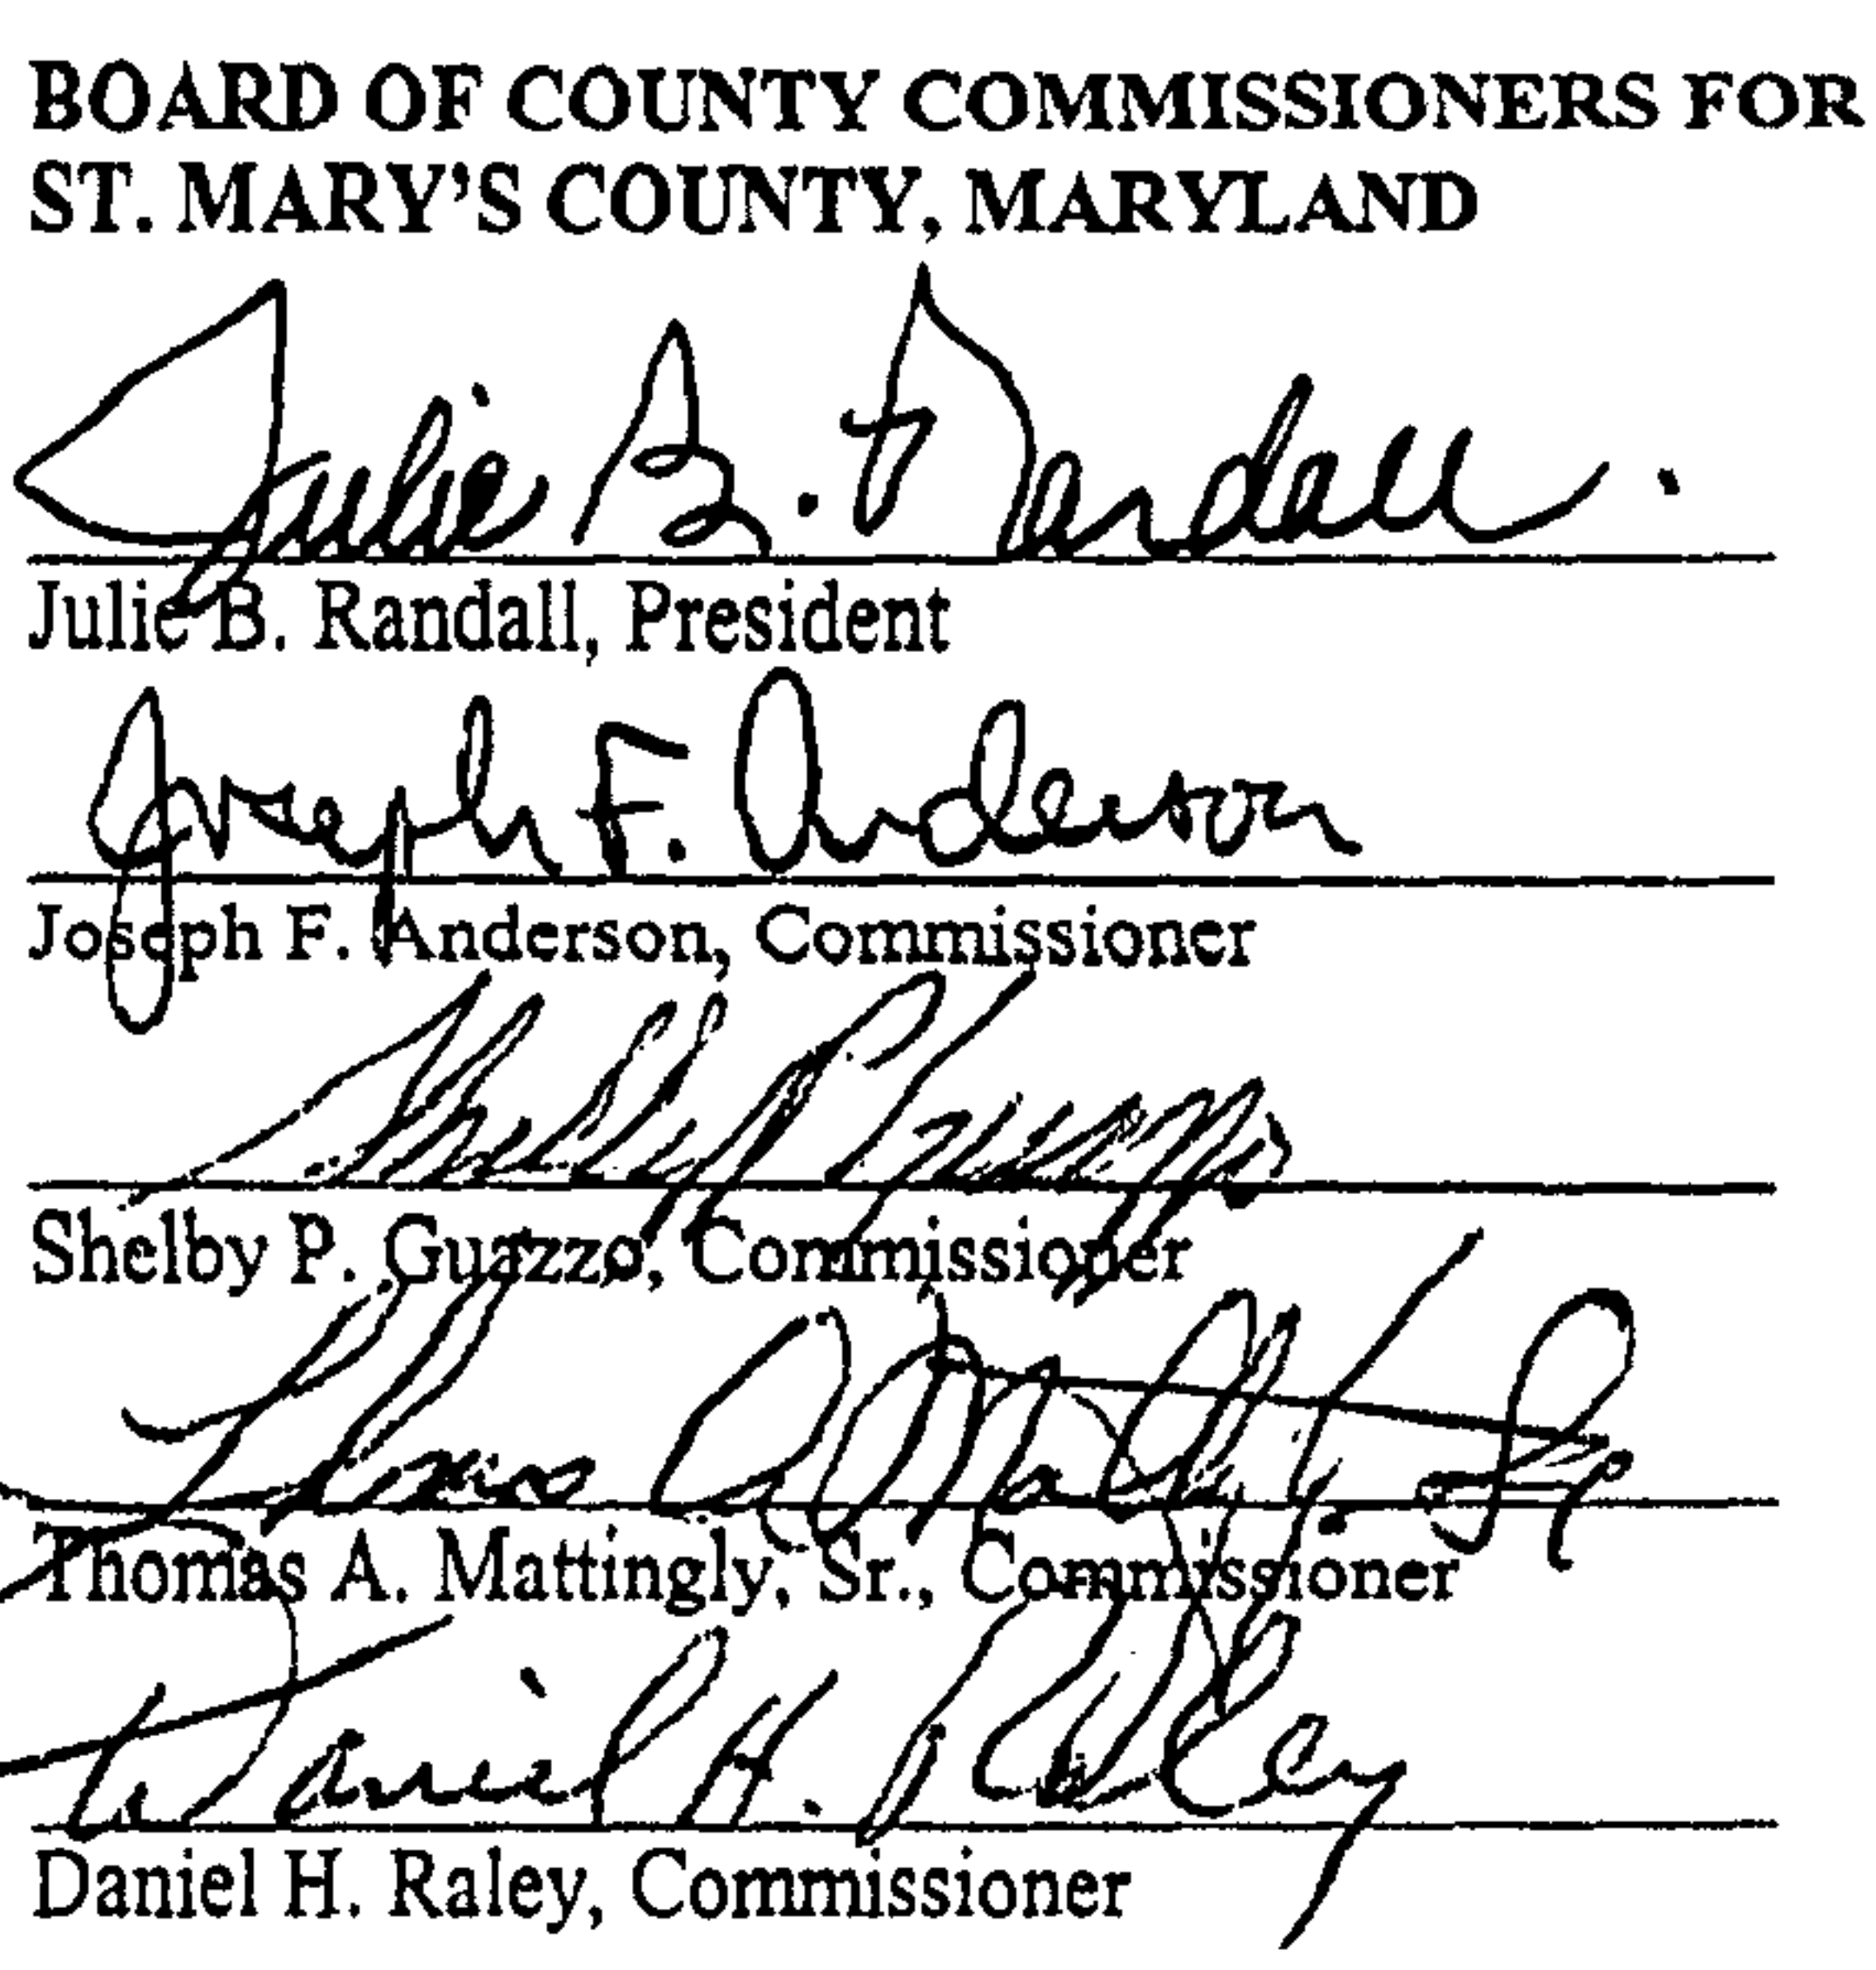 BOARD OF COUNTY COMMISSIONERS FOR
ST. MARY'S COUNTY, MARYLAND
Julie B. Randall.
Julie B. Randall, President
Joseph F. Anderson
Joseph F. Anderson, Commissioner
Shelby P. Guazzo
Shelby P. Guazzo, Commissioner
Thomas A. Mattingly Sr
Thomas A. Mattingly, Sr., Commissioner
Daniel H. Raley
Daniel H. Raley, Commissioner